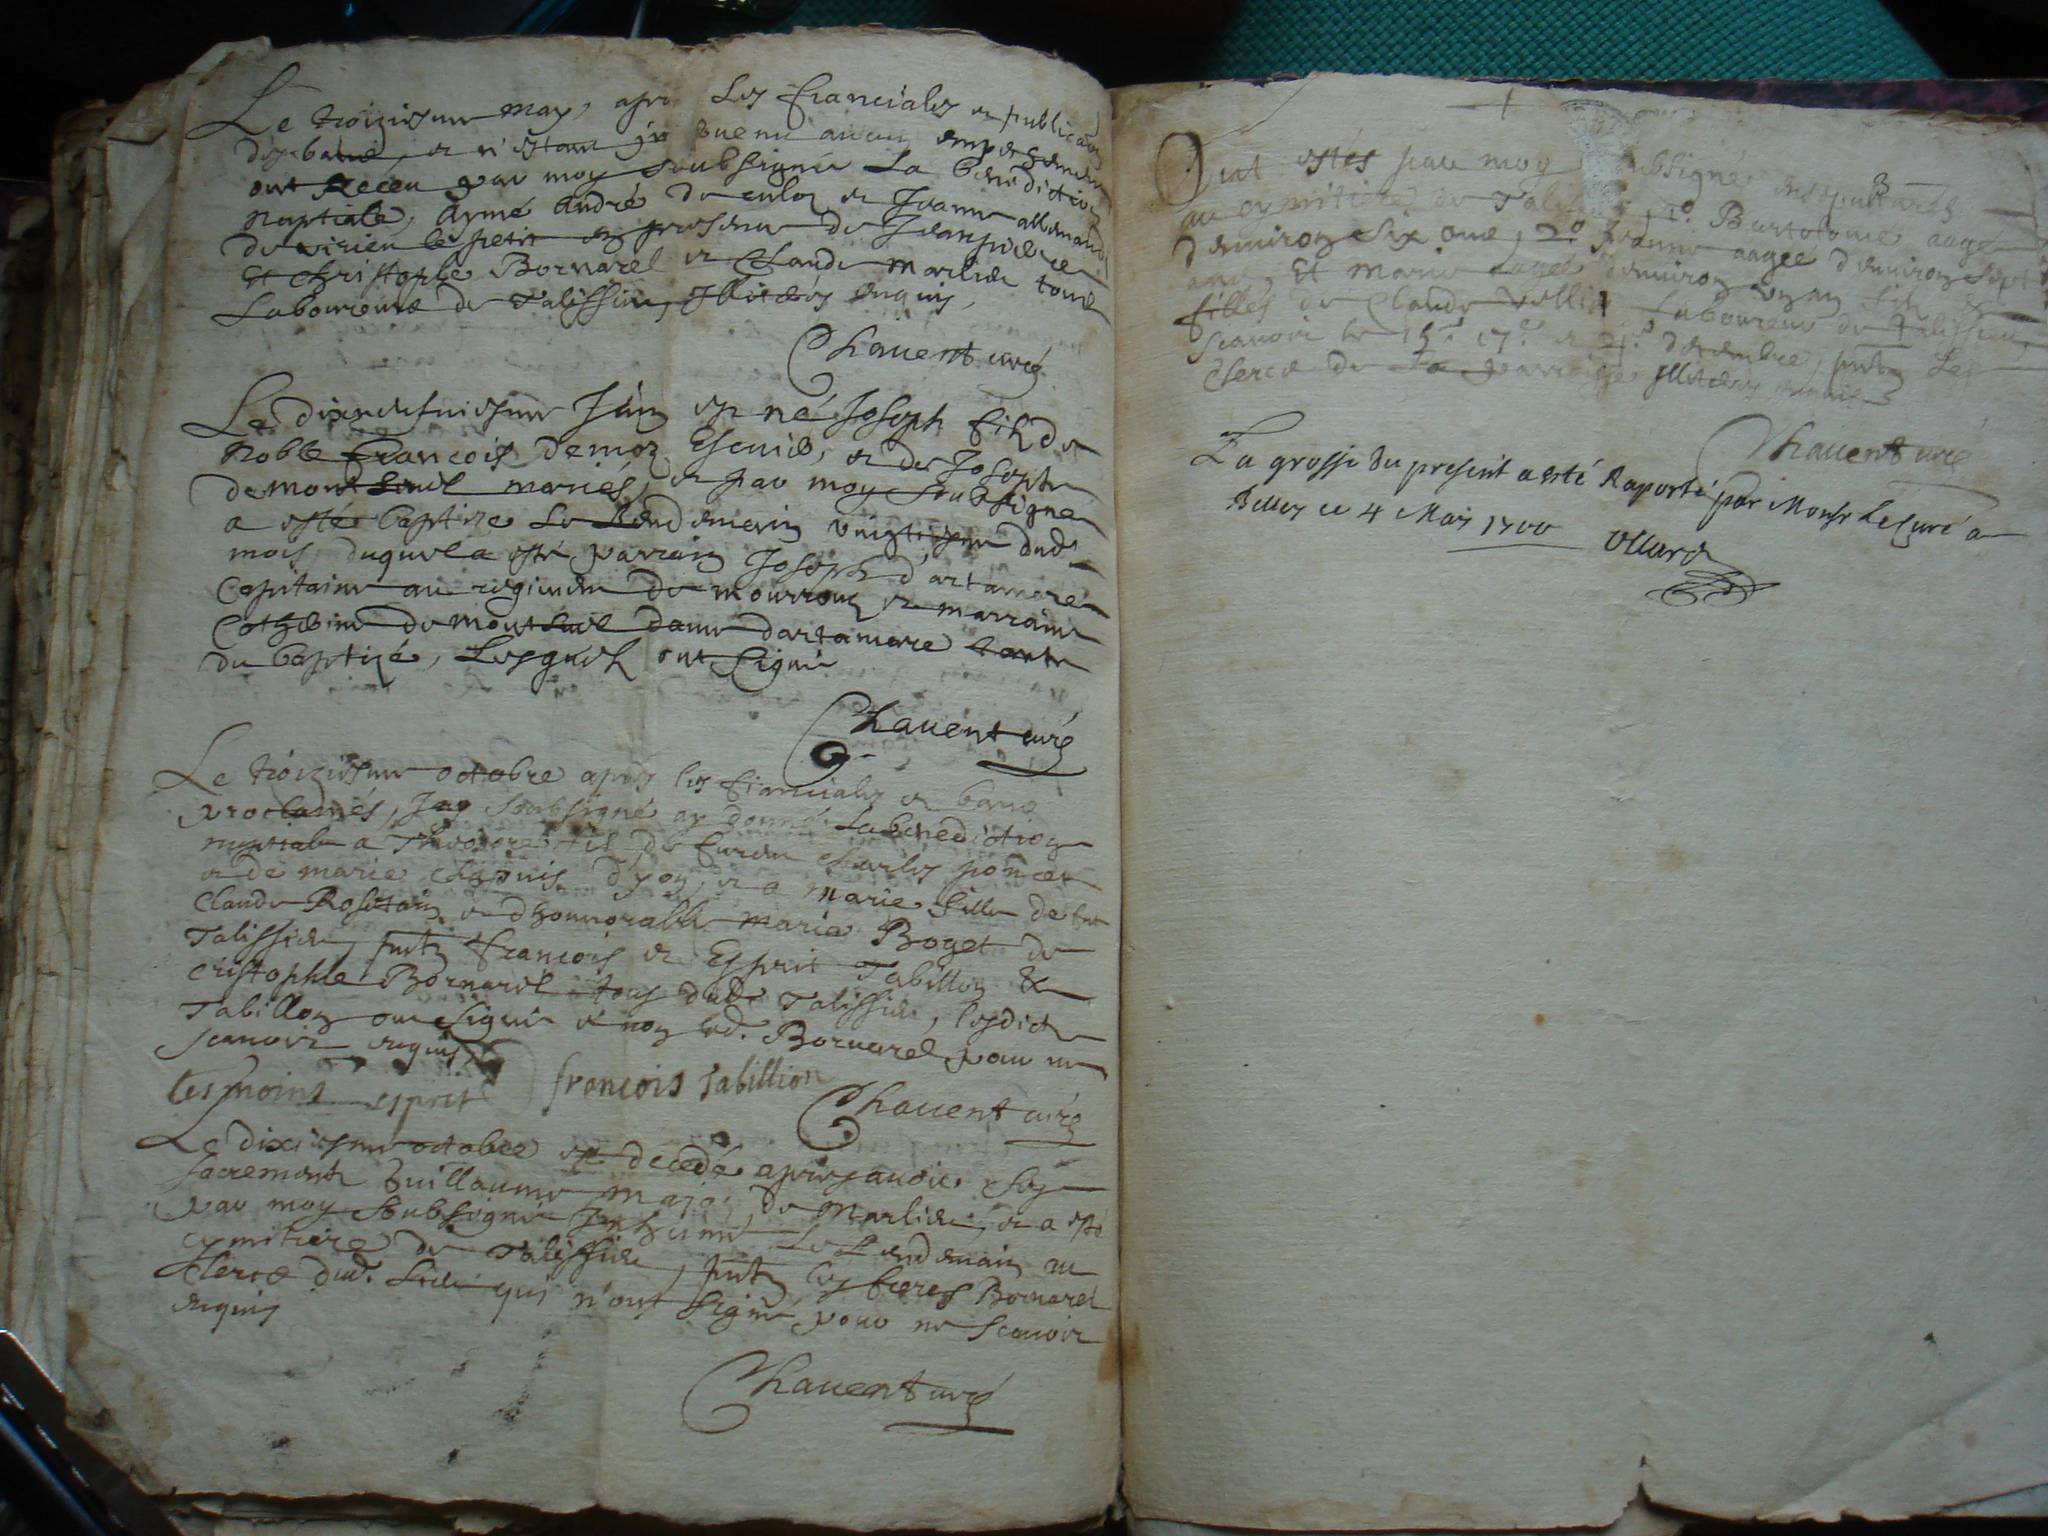 Le troiziesme may, apres les fiancialles et publication
des bans, et n'estant survenu aucun empechement
ont receu par moy soubsigné La benediction
nuptiale, Aymé André de culoz et Jeanne allemand
de virieu le petit en presence de Jeanpierre
Et christophle Bornarel et Claude marlieu tous
Laboureurs de Talissieu, illiteres enquis,
Chavent curé
Le dixneufviesme Juin est né Joseph fils de
Noble François Demoz Escuier, et de Josephte
demont mariés, et par moy soubsigné
a esté baptize Le Lendemain vingtiesme dud.
mois, duquel a esté parrain Joseph d'artamare
Capitaine au regiment de mourroux et marraine
Catherine de dame dartamare tante
du baptizé, Lesquels ont signé
Chavent curé
Le troiziesme octobre apres les fiancialles et bans
proclamés, Jay soubsigné ay donné La benediction
nuptiale a Theodore fils de furent Charles poncet
et de marie dyon, et a marie fille de feu
Claude Rosetain et dhonnorable marie Boget de
Talissieu, pnts françois et Esprit Tabillon &
Cristophle Bornarel tous dud. Talissieu, lesdicts
Tabillon ont signé et non led. Bornarel pour ne
scavoir enquis
tesmoins esprit françois tabillion
Chavent curé
Le dixiesme octobre est decedé apres avoir
sacrements Guillaume de Marlieu, et a esté
par moy soubsigné Inhumé Le Lendemain au
cymitiere de Talissieu, pnts les freres Bornarel
Clercs dud. Lieu qui n'ont signé pour ne scavoir
enquis
Chavent curé
Ont estés par moy soubsigné
au cymitiere de Talissieu, 1º Bartolome aage
denviron six ans, 2º Jeanne aagee denviron sept
ans, Et marie aagée denviron un an
filles de Claude Vellin Laboureur de Talissieu,
scavoir le 15e 17e et 21e decembre, pnts Les
Clercs de La parroisse illiteres enquis
Chavent curé
La grosse du present a esté Raporté par Monsr Le Curé a
Belley ce 4 May 1700